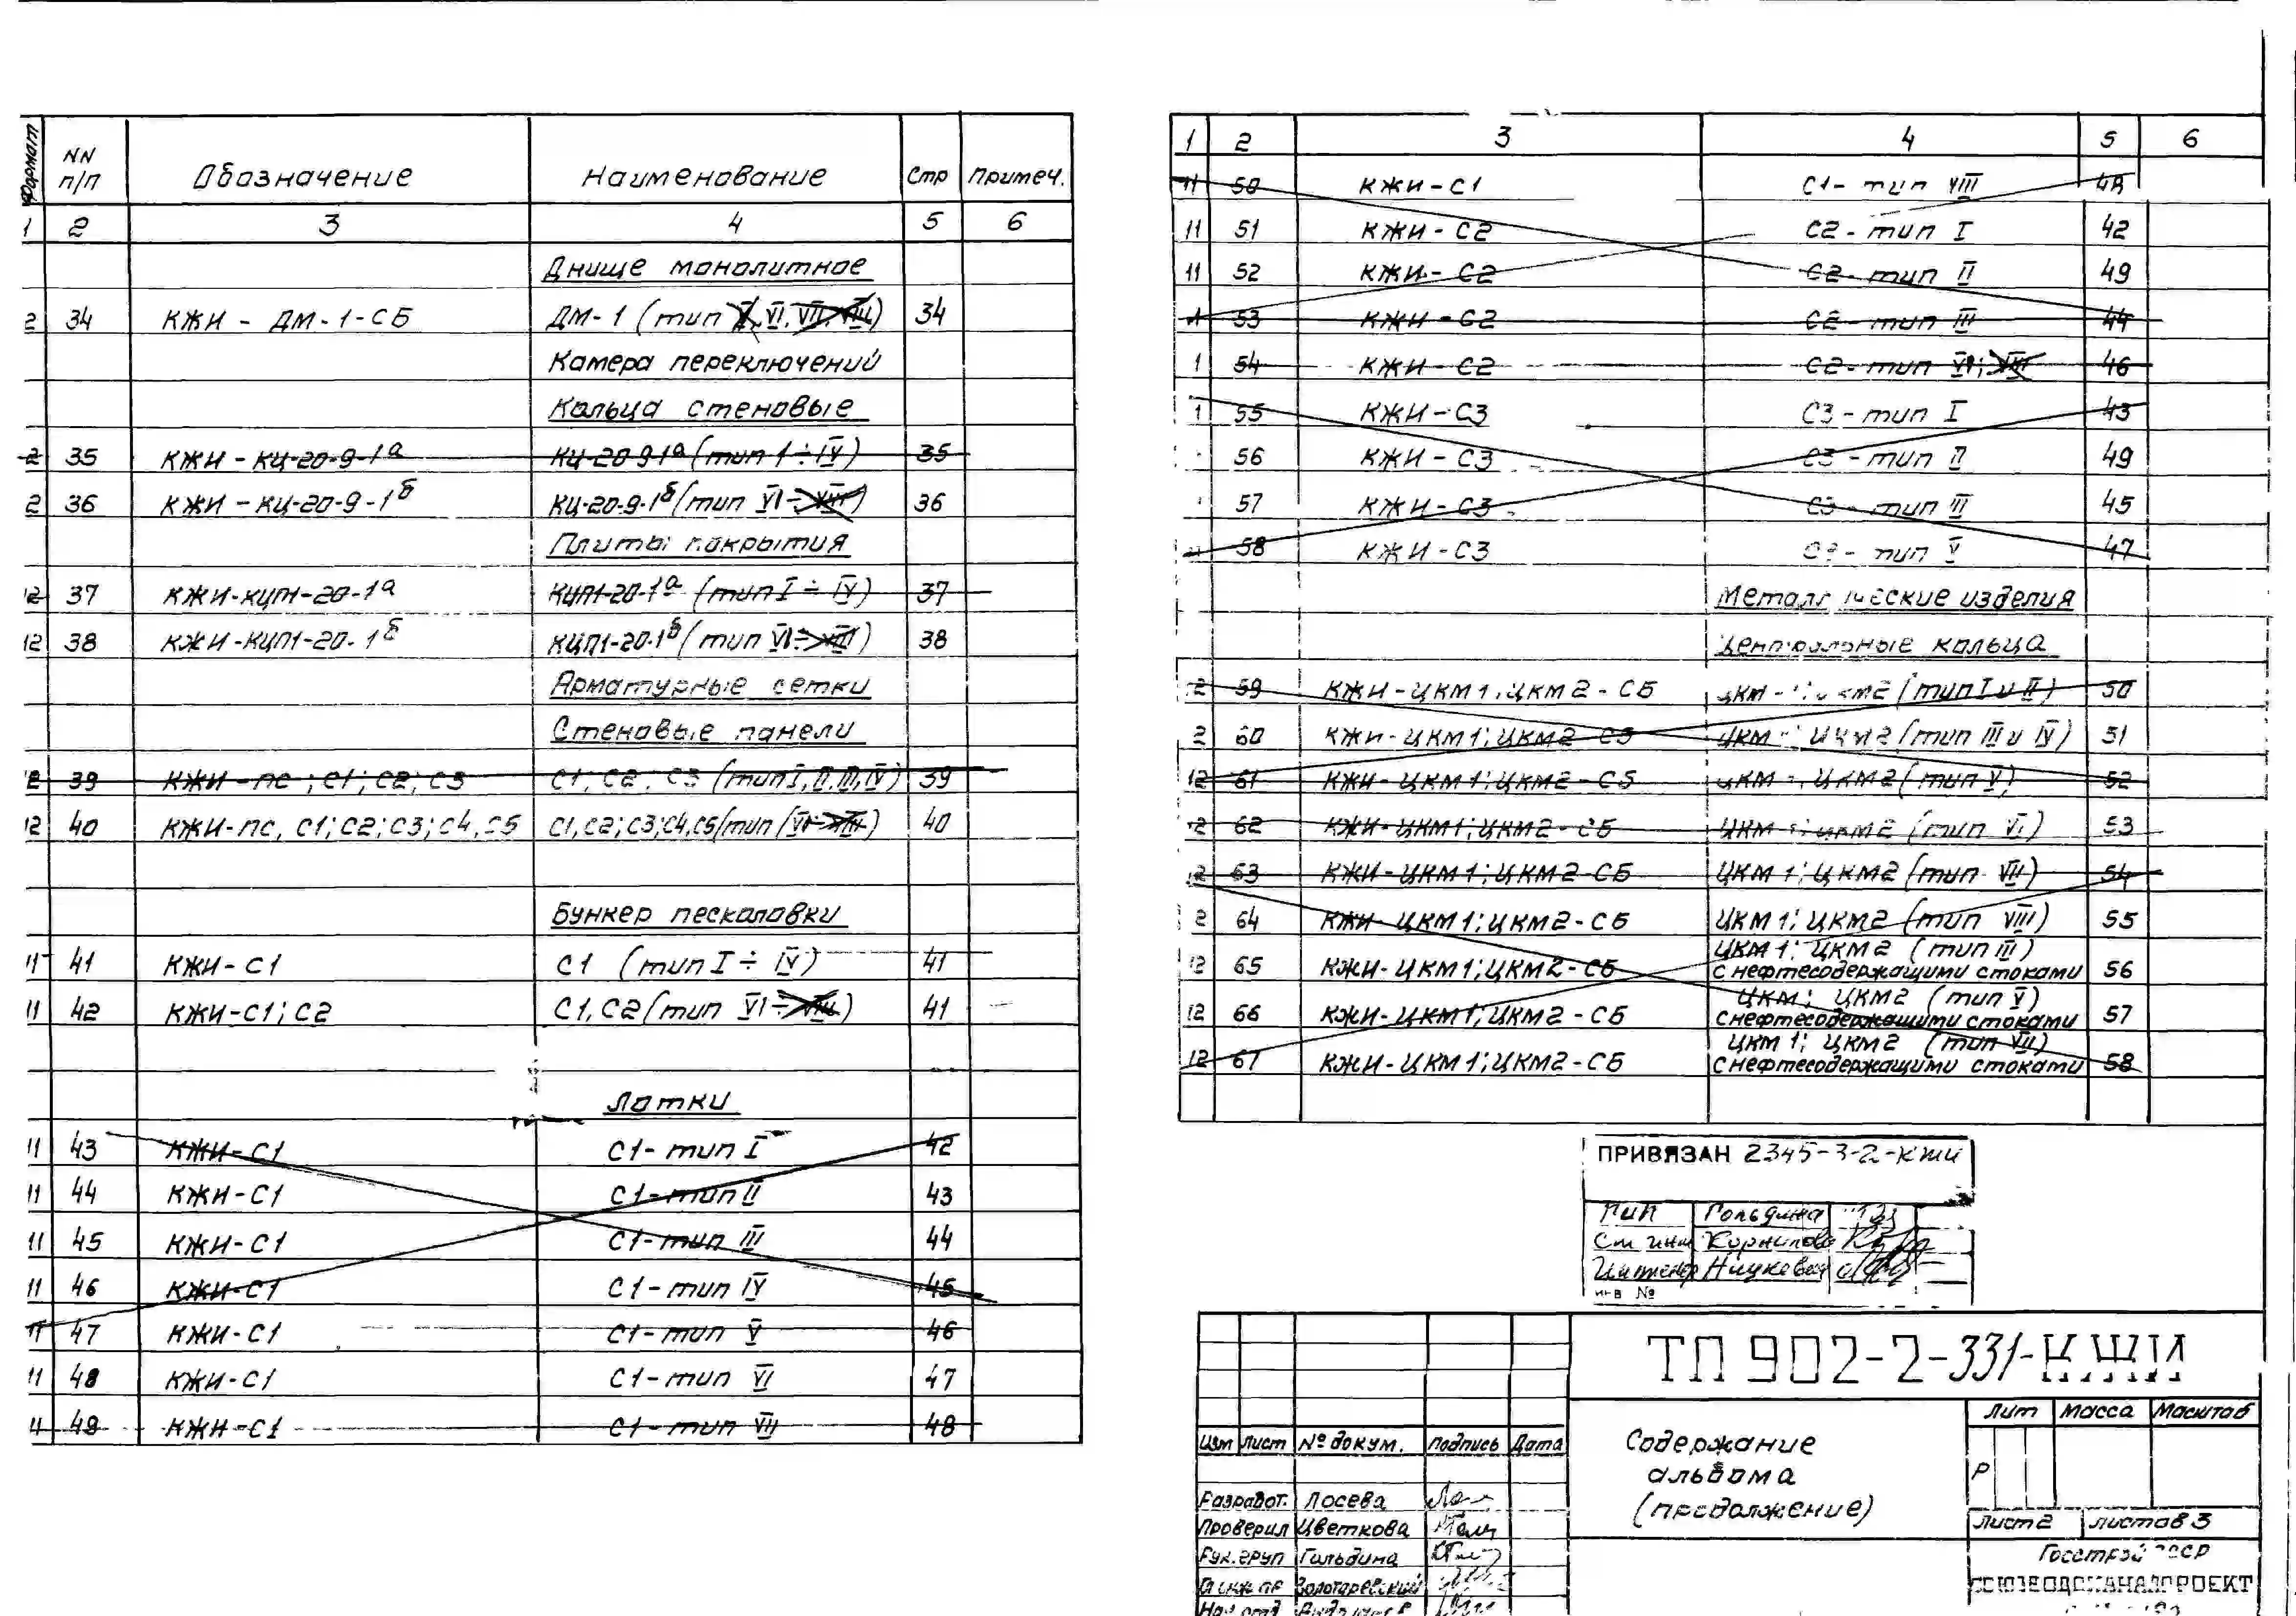 Формат NN п/п Обозначение Наименование Стр Примеч.
1 2 3 4 5 6
Днище монолитное
2 34 КЖИ - ДМ-1-СБ ДМ-1 (тип V, VI, VII, VIII) 34
Камера переключений
Кольца стеновые
2 35 КЖИ - КЦ-20-9-1а КЦ-20-9-1а (тип I ÷ IV) 35
2 36 КЖИ - КЦ-20-9-1б КЦ-20-9-1б (тип VI ÷ VIII) 36
Плиты покрытия
12 37 КЖИ-КЦП1-20-1а КЦП1-20-1а (тип I ÷ IV) 37
12 38 КЖИ-КЦП1-20-1б КЦП1-20-1б (тип VI ÷ VIII) 38
Арматурные сетки
Стеновые панели
12 39 КЖИ - ПС; С1; С2; С3 С1; С2; С3 (тип I, II, III, IV) 39
12 40 КЖИ-ПС, С1; С2; С3; С4, С5 С1, С2; С3; С4, С5 (тип VI ÷ VIII) 40
Бункер песколовки
11 41 КЖИ-С1 С1 (тип I ÷ IV) 41
11 42 КЖИ-С1; С2 С1, С2 (тип VI ÷ VIII) 41
Лотки
11 43 КЖИ-С1 С1- тип I 42
11 44 КЖИ-С1 С1- тип II 43
11 45 КЖИ-С1 С1- тип III 44
11 46 КЖИ-С1 С1- тип IV 45
11 47 КЖИ-С1 С1- тип V 46
11 48 КЖИ-С1 С1- тип VI 47
11 49 КЖИ-С1 С1- тип VII 48
1 2 3 4 5 6
11 50 КЖИ-С1 С1- тип VIII 48
11 51 КЖИ-С2 С2- тип I 42
11 52 КЖИ-С2 С2- тип II 49
53 КЖИ-С2 С2- тип III 44
1 54 КЖИ-С2 С2- тип VI; VIII 46
1 55 КЖИ-С3 С3- тип I 43
56 КЖИ-С3 С3- тип II 49
57 КЖИ-С3 С3- тип III 45
58 КЖИ-С3 С3- тип V 47
Металлические изделия
Центральные кольца
2 59 КЖИ-ЦКМ1; ЦКМ2-СБ ЦКМ-1; ЦКМ2 (тип I и II) 50
2 60 КЖИ-ЦКМ1; ЦКМ2-СБ ЦКМ ; ЦКМ2 (тип III и IV) 51
12 61 КЖИ-ЦКМ1; ЦКМ2-СБ ЦКМ ; ЦКМ2 (тип V) 52
12 62 КЖИ-ЦКМ1; ЦКМ2-СБ ЦКМ 1; ЦКМ2 (тип VI) 53
12 63 КЖИ-ЦКМ1; ЦКМ2-СБ ЦКМ 1; ЦКМ2 (тип VII) 54
2 64 КЖИ-ЦКМ1; ЦКМ2-СБ ЦКМ 1; ЦКМ2 (тип VIII) 55
12 65 КЖИ-ЦКМ1; ЦКМ2-СБ ЦКМ 1; ЦКМ2 (тип III)
с нефтесодержащими стоками 56
12 66 КЖИ-ЦКМ1; ЦКМ2-СБ ЦКМ; ЦКМ2 (тип V)
с нефтесодержащими стоками 57
12 67 КЖИ-ЦКМ1; ЦКМ2-СБ ЦКМ 1; ЦКМ2 (тип VII)
с нефтесодержащими стоками 58
ПРИВЯЗАН 2345-3-2-КЖИ
ГИП Гольдина
Ст инж Корнилова
Инженер
инв №
ТП 902-2-331-КЖИ
Изм Лист № докум. Подпись Дата
Разработ. Лосева
Проверил Цветкова
Рук. груп Гольдина
Гл инж пр Золотаревский
Нач отд
Содержание
альбома
(продолжение)
Лит Масса Масштаб
Р
Лист 2 Листов 3
Госстрой СССР
СОЮЗВОДОКАНАЛПРОЕКТ